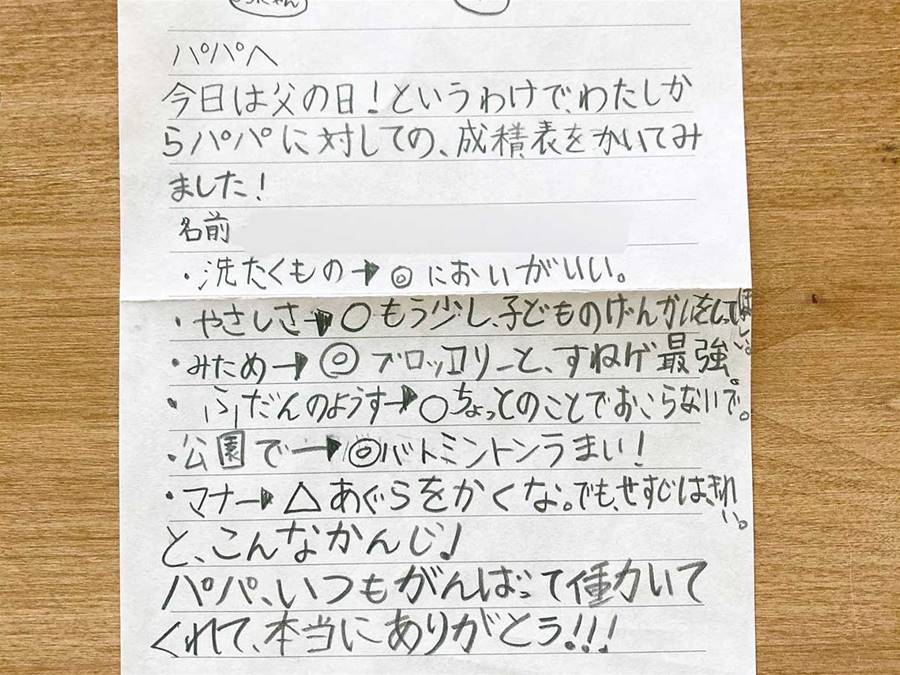 パパへ
今日は父の日!というわけで、わたしか
らパパに対しての、成積表をかいてみ
ました!
名前
・洗たくもの→◎においがいい。
・やさしさ→○もう少し、子どものげんかいをしってほしい。
・みため→◎ブロッコリーと、すねゲ最強。
・ふだんのようす→○ちょっとのことでおこらないで。
・公園で→◎バトミントンうまい!
・マナー→△あぐらをかくな。でも、せすじは、きれい。
と、こんなかんじ♩
パパ、いつもがんばって働いて
くれて、本当にありがとう!!!